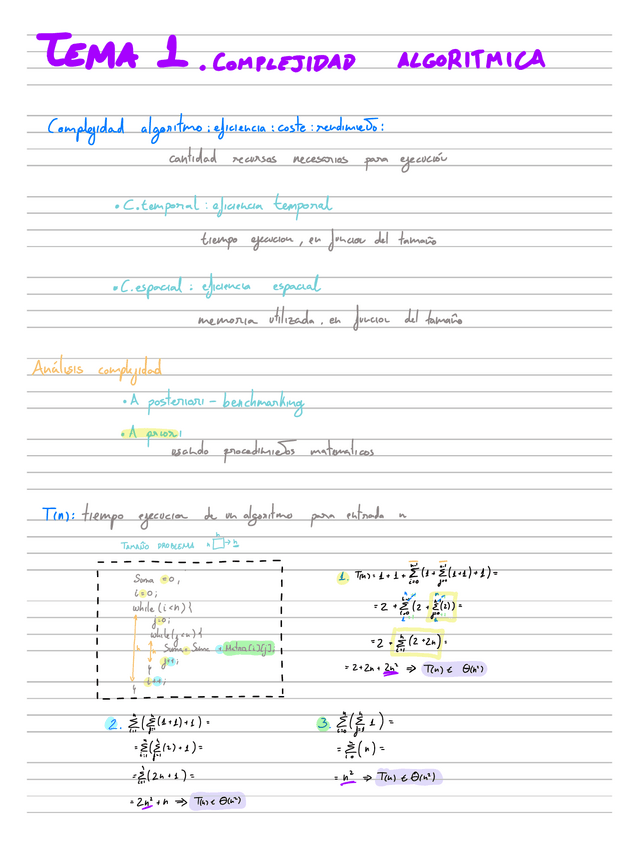 TEMA 1. COMPLEJIDAD ALGORITMICA
Complejidad algoritmo: eficiencia: coste: rendimiento:
cantidad recursos necesarios para ejecución
• C. temporal: eficiencia temporal
tiempo ejecucion, en funcion del tamaño
• C. espacial: eficiencia espacial
memoria utilizada, en funcion del tamaño
Análisis complejidad
• A posteriori - benchmarking
• A priori
usando procedimientos matematicos
T(n): tiempo ejecucion de un algoritmo para entrada n
TAMAÑO PROBLEMA n → n
n
Suma = 0;
i = 0;
while (i < n) {
j = 0;
while (j < n) {
Suma = Suma + Matriz[i][j];
j++;
i++;
}
1. T(n) = 1 + 1 + Σ (1 + Σ (1+1) + 1) =
= 2 + Σ (2 + Σ (2)) =
= 2 + Σ (2 + 2n) =
= 2 + 2n + 2n² ⇒ T(n) ∈ Θ(n²)
2. Σ (Σ (1+1) + 1) =
= Σ (Σ (2) + 1) =
= Σ (2n + 1) =
= 2n² + n ⇒ T(n) ∈ Θ(n²)
3. Σ (Σ 1) =
= Σ (n) =
= n² ⇒ T(n) ∈ Θ(n²)